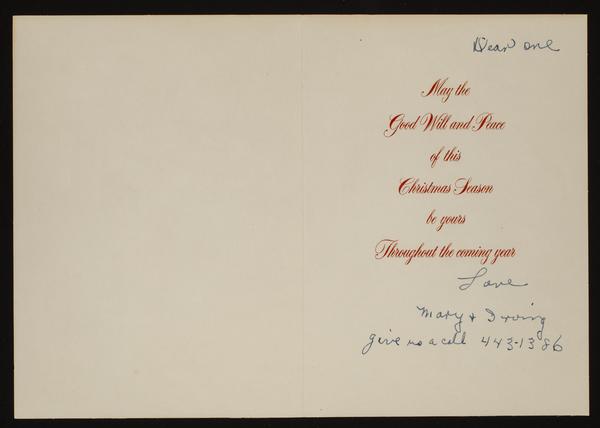 Dear one
May the
Good Will and Peace
of this
Christmas Season
be yours
Throughout the coming year
Love
Mary + Irving
give us a call 443-1386